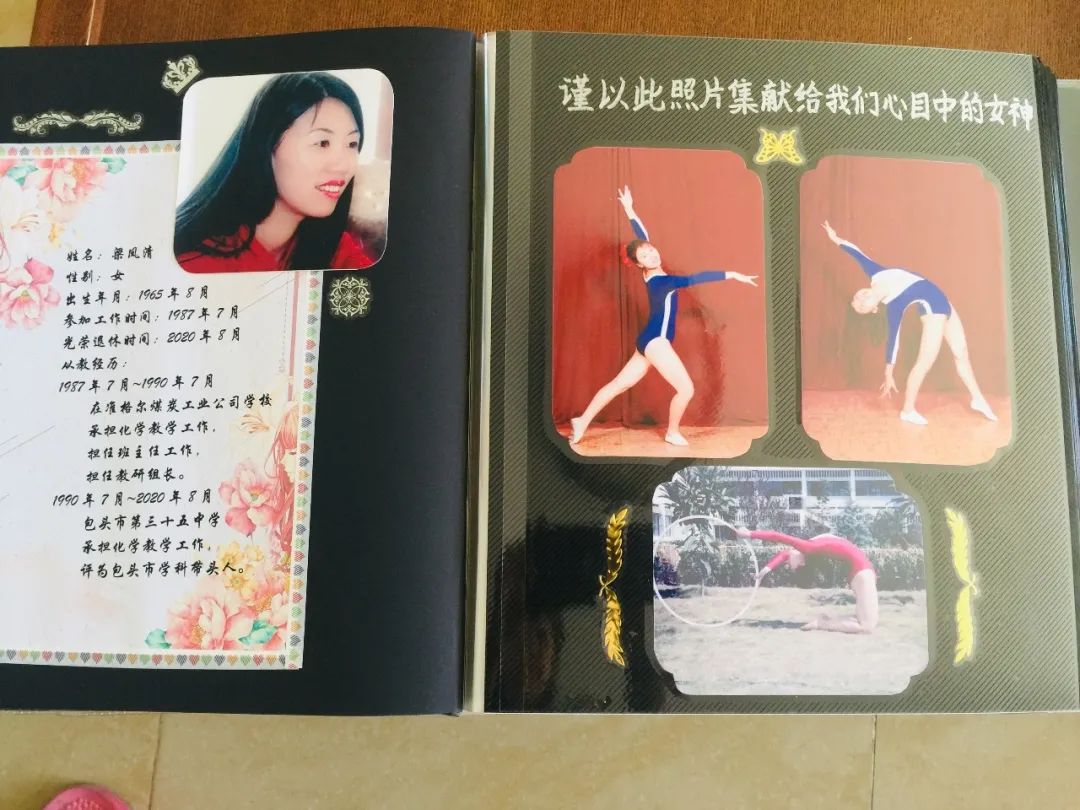 姓名：梁凤清
性别：女
出生年月：1965年8月
参加工作时间：1987年7月
光荣退休时间：2020年8月
从教经历：
1987年7月~1990年7月
在准格尔煤炭工业公司学校
承担化学教学工作，
担任班主任工作，
担任教研组长。
1990年7月~2020年8月
包头市第三十五中学
承担化学教学工作，
评为包头市学科带头人。
谨以此照片集献给我们心目中的女神